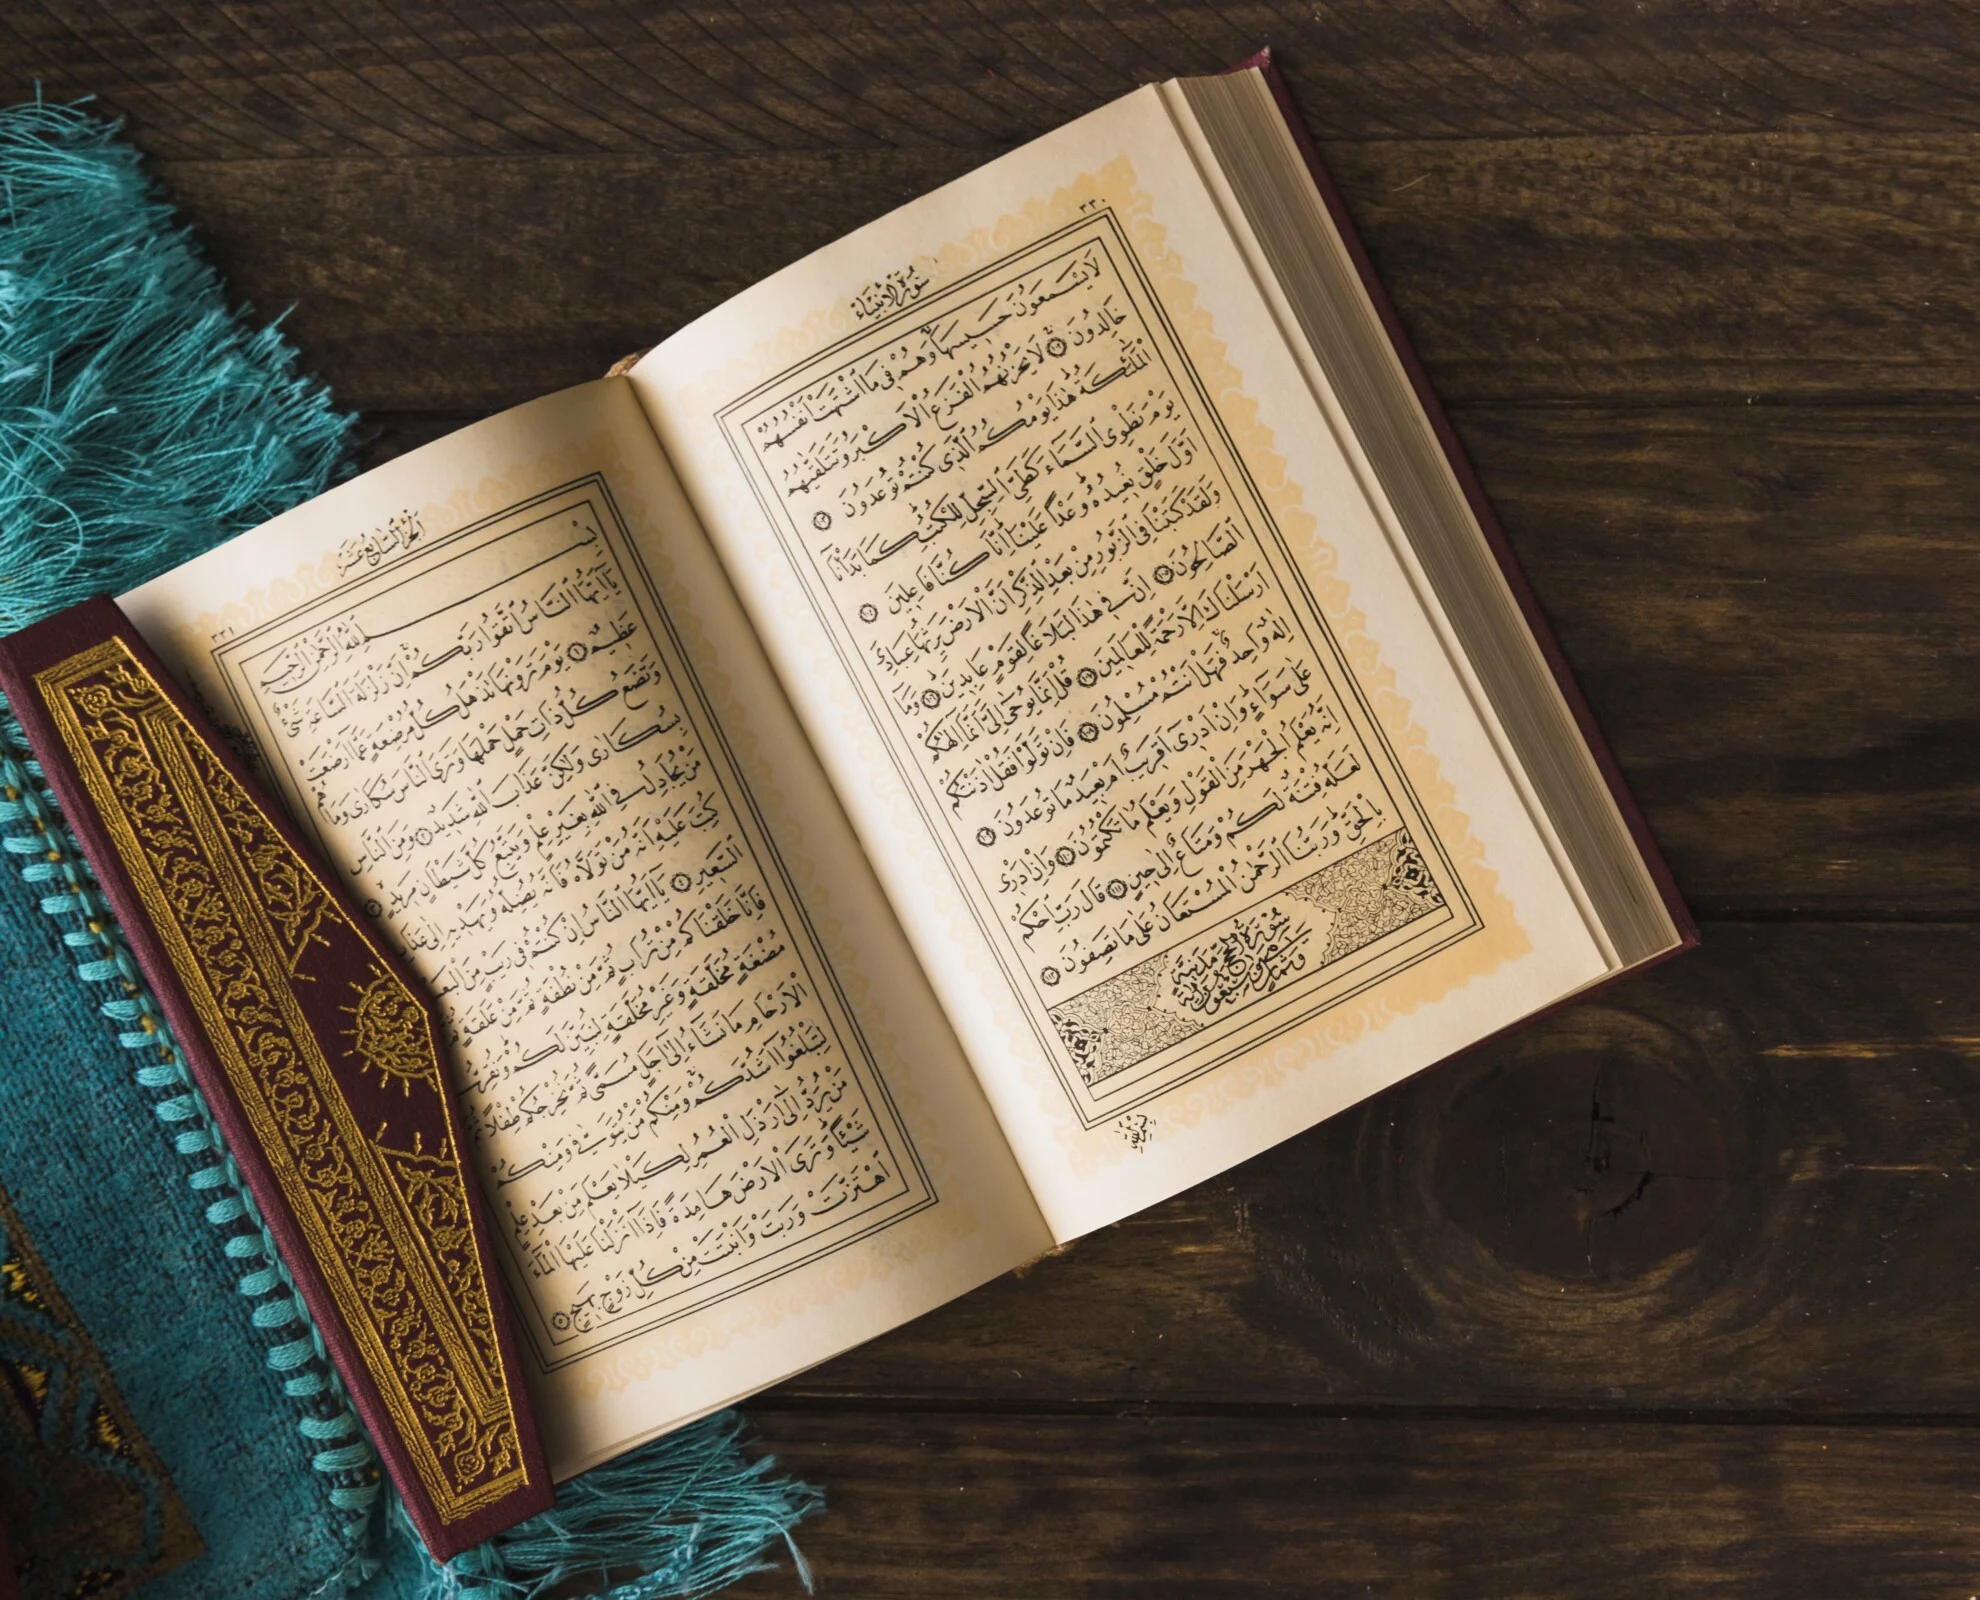 ٣٣٠
سُورَةُ الْاَنْبِيَاءِ
لَا يَسْمَعُونَ حَسِيسَهَا وَهُمْ فِى مَا اشْتَهَتْ اَنْفُسُهُمْ
خَالِدُونَ ١٠٢ لَا يَحْزُنُهُمُ الْفَزَعُ الْاَكْبَرُ وَتَتَلَقّٰيهُمُ
الْمَلٰٓئِكَةُ هٰذَا يَوْمُكُمُ الَّذِى كُنْتُمْ تُوعَدُونَ ١٠٣
يَوْمَ نَطْوِى السَّمَاءَ كَطَىِّ السِّجِلِّ لِلْكُتُبِ كَمَا بَدَأْنَا
اَوَّلَ خَلْقٍ نُعِيدُهُ وَعْدًا عَلَيْنَا اِنَّا كُنَّا فَاعِلِينَ ١٠٤
وَلَقَدْ كَتَبْنَا فِى الزَّبُورِ مِنْ بَعْدِ الذِّكْرِ اَنَّ الْاَرْضَ يَرِثُهَا عِبَادِىَ
الصَّالِحُونَ ١٠٥ اِنَّ فِى هٰذَا لَبَلَاغًا لِقَوْمٍ عَابِدِينَ ١٠٦ وَمَا
اَرْسَلْنَاكَ اِلَّا رَحْمَةً لِلْعَالَمِينَ ١٠٧ قُلْ اِنَّمَا يُوحٰى اِلَىَّ اَنَّمَا اِلٰهُكُمْ
اِلٰهٌ وَاحِدٌ فَهَلْ اَنْتُمْ مُسْلِمُونَ ١٠٨ فَاِنْ تَوَلَّوْا فَقُلْ اٰذَنْتُكُمْ
عَلٰى سَوَاءٍ وَاِنْ اَدْرِى اَقَرِيبٌ اَمْ بَعِيدٌ مَا تُوعَدُونَ ١٠٩
اِنَّهُ يَعْلَمُ الْجَهْرَ مِنَ الْقَوْلِ وَيَعْلَمُ مَا تَكْتُمُونَ ١١٠ وَاِنْ اَدْرِى
لَعَلَّهُ فِتْنَةٌ لَكُمْ وَمَتَاعٌ اِلٰى حِينٍ ١١١ قَالَ رَبِّ احْكُمْ
بِالْحَقِّ وَرَبُّنَا الرَّحْمٰنُ الْمُسْتَعَانُ عَلٰى مَا تَصِفُونَ ١١٢
سُورَةُ الْحَجِّ مَدَنِيَّةٌ
وَهِىَ
وَسَبْعُونَ اٰيَةً
بِسْمِ اللّٰهِ
٣٣١
اَلْجُزْءُ السَّابِعَ عَشَرَ
بِسْمِ اللّٰهِ الرَّحْمٰنِ الرَّحِيمِ
يَا اَيُّهَا النَّاسُ اتَّقُوا رَبَّكُمْ اِنَّ زَلْزَلَةَ السَّاعَةِ شَىْءٌ
عَظِيمٌ ١ يَوْمَ تَرَوْنَهَا تَذْهَلُ كُلُّ مُرْضِعَةٍ عَمَّا اَرْضَعَتْ
وَتَضَعُ كُلُّ ذَاتِ حَمْلٍ حَمْلَهَا وَتَرَى النَّاسَ سُكَارٰى وَمَا هُمْ
بِسُكَارٰى وَلٰكِنَّ عَذَابَ اللّٰهِ شَدِيدٌ ٢ وَمِنَ النَّاسِ
مَنْ يُجَادِلُ فِى اللّٰهِ بِغَيْرِ عِلْمٍ وَيَتَّبِعُ كُلَّ شَيْطَانٍ مَرِيدٍ ٣
كُتِبَ عَلَيْهِ اَنَّهُ مَنْ تَوَلَّاهُ فَاَنَّهُ يُضِلُّهُ وَيَهْدِيهِ اِلٰى عَذَابِ
السَّعِيرِ ٤ يَا اَيُّهَا النَّاسُ اِنْ كُنْتُمْ فِى رَيْبٍ مِنَ الْبَعْثِ
فَاِنَّا خَلَقْنَاكُمْ مِنْ تُرَابٍ ثُمَّ مِنْ نُطْفَةٍ ثُمَّ مِنْ عَلَقَةٍ ثُمَّ مِنْ
مُضْغَةٍ مُخَلَّقَةٍ وَغَيْرِ مُخَلَّقَةٍ لِنُبَيِّنَ لَكُمْ وَنُقِرُّ فِى
الْاَرْحَامِ مَا نَشَاءُ اِلٰى اَجَلٍ مُسَمًّى ثُمَّ نُخْرِجُكُمْ طِفْلًا ثُمَّ
لِتَبْلُغُوا اَشُدَّكُمْ وَمِنْكُمْ مَنْ يُتَوَفّٰى وَمِنْكُمْ
مَنْ يُرَدُّ اِلٰى اَرْذَلِ الْعُمُرِ لِكَيْلَا يَعْلَمَ مِنْ بَعْدِ عِلْمٍ
شَيْئًا وَتَرَى الْاَرْضَ هَامِدَةً فَاِذَا اَنْزَلْنَا عَلَيْهَا الْمَاءَ
اهْتَزَّتْ وَرَبَتْ وَاَنْبَتَتْ مِنْ كُلِّ زَوْجٍ بَهِيجٍ ٥